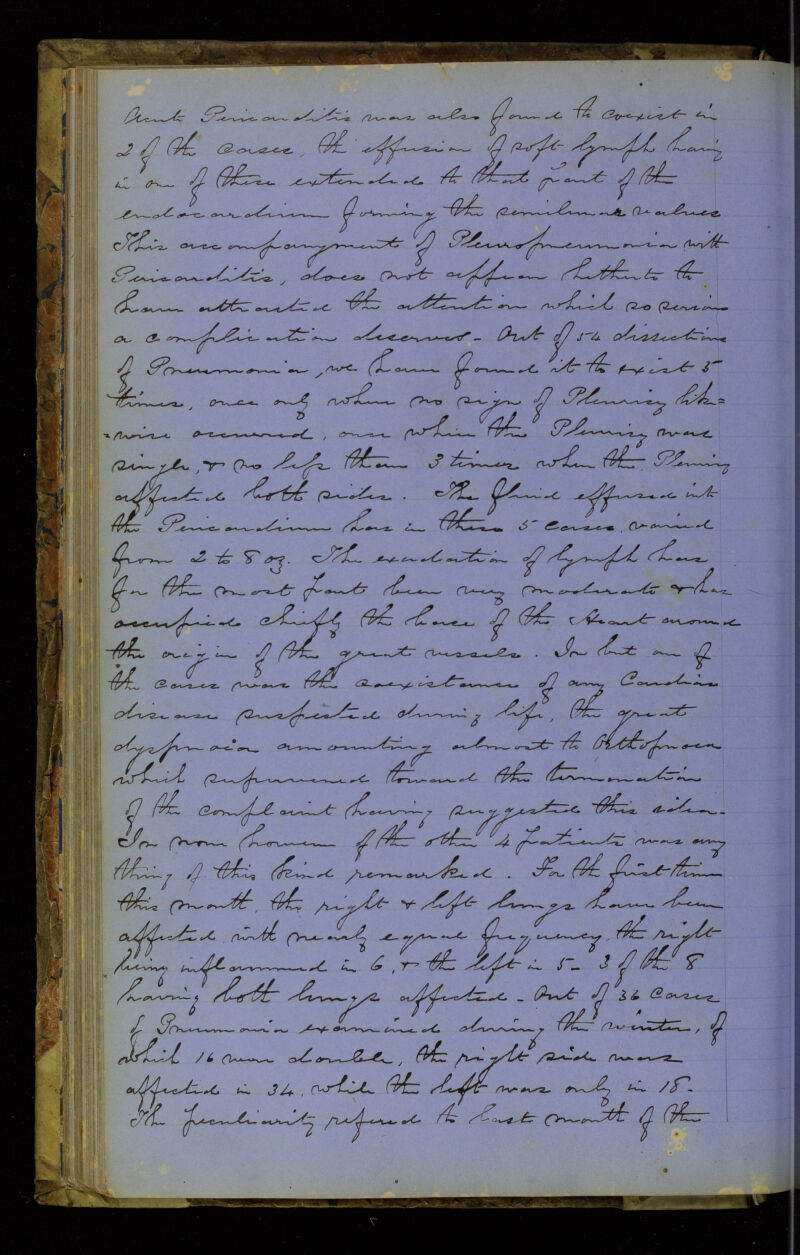 Acute Pericarditis was also found to coexist in
2 of the cases, the effusion of soft lymph having
in one of these extended to that part of the
endocardium forming the semilunar valves
This accompanyment of Pleuropneumonia with
Pericarditis, does not appear hetherto to
have attracted the attention which so serious
a complication deserves - Out of 54 dissections
of Pneumonia, we have found it to exist 5
times, once only when no sign of Pleurisy like=
=wise occurred, once when the Pleurisy was
single, & no less than 3 times when the Pleurisy
affected both sides. The fluid effused into
the Pericardium has in these 5 cases varied
from 2 to 8 oz. The exudation of lymph has
for the most part been very moderate & has
occupied chiefly the base of the Heart around
the origin of the great vessels. In but one of
the cases was the coexistance of any Cardiac
disease suspected during life, the great
dyspnoia amounting almost to Orthopnoea
which supervened toward the termonation
of the complaint having suggested this idea-
In none however of the other 4 patients was any
thing of this kind remarked. For the first time
this month, the right & left lungs have been
affected with nearly equal frequency, the right
being inflammed in 6, & the left in 5- 3 of the 8
having both lungs affected - Out of 36 cases
of Pneumonia examined during the winter, of
which 16 were double, the right side was
affected in 34, while the left was only in 18-
The peculiarity refered to last month of the